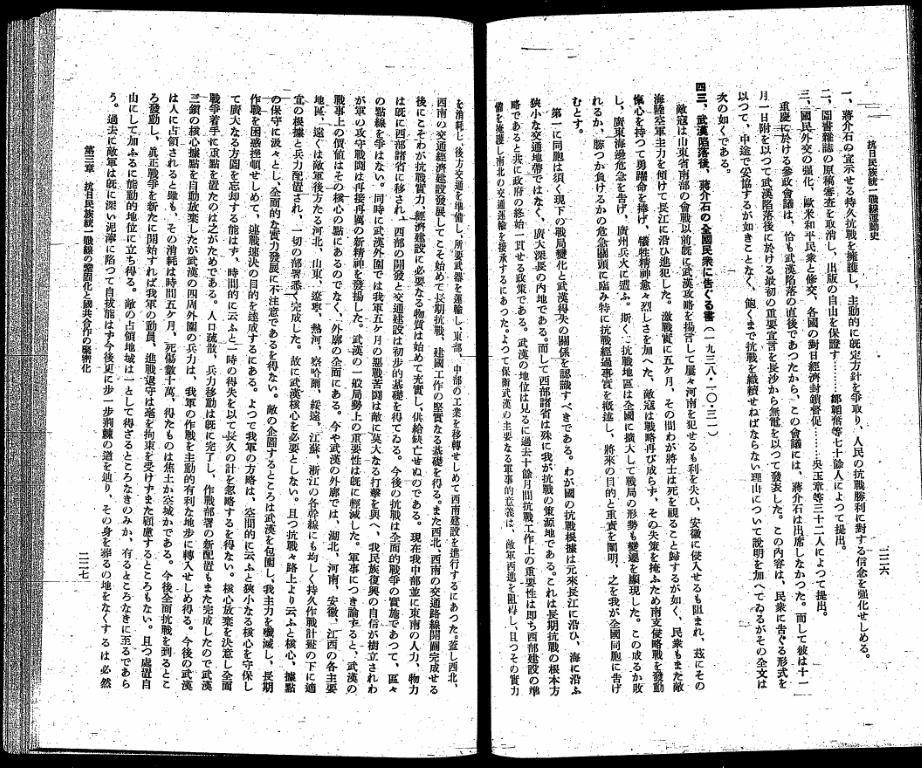 抗日民族統一戰線運動史
二二六
一、蔣介石の宣示せる持久抗戰を擁護し、主動的に既定方針を爭取り、人民の抗戰勝利に對する信念を強化せしめる。
二、圖書雜誌の原稿審査を取消し、出版の自由を保證す……鄒韜奮等七十餘人によつて提出。
三、國民外交の強化、歐米和平民衆と修交、各國の對日經濟封鎖督促……吳玉章等三十二人によつて提出。
重慶に於ける參政會議は、恰も武漢陷落の直後であつたから、この會議には、蔣介石は出席しなかつた。而して彼は十一
月一日附を以つて武漢陷落後に於ける最初の重要宣言を長沙から無電を以つて發表した。この內容は、民衆に告ぐる形式を
以つて、中途で妥協するが如きことなく、飽くまで抗戰を繼續せねばならない理由について說明を加へてゐるがその全文は
次の如くである。
四三、武漢陷落後、蔣介石の全國民衆に告ぐる書（一九三八・一〇・三一）
敵寇は山東省南部の會戰以前既に武漢攻略を揚言して屢々河南を犯せるも利を失ひ、安徽に侵入せるも阻まれ、茲にその
海陸空軍主力を傾けて長江に沿ひ進犯した。激戰實に五ヶ月、その間わが將士は死を視ること歸するが如く、民衆もまた敵
愾心を持つて勇躍命を捧げ、犧牲精神愈々烈しさを加へた、敵寇は戰略再び成らず、その失策を掩ふため南支侵略戰を發動
し、廣東海邊危急を告げ、廣州兵火に遭ふ。斯くて抗戰地區は全國に擴大して戰局の形勢も變遷を顯現した。この成るか敗
れるか、勝つか負けるかの危急關頭に臨み特に抗戰經過事實を概述し、將來の目的と重責を闡明、之を我が全國同胞に告げ
むとす。
第一に同胞は須く現下の戰局變化と武漢得失の關係を認識すべきである。わが國の抗戰根據は元來長江に沿ひ、海に沿ふ
狹小な交通地帶ではなく、廣大深長の內地である。而して西部諸省は殊に我が抗戰の策源地である。これは長期抗戰の根本方
略であると共に政府の終始一貫せる政策である。武漢の地位は見るに過去十餘月間抗戰工作上の重要性は卽ち西部建設の準
備を掩護し南北の交通運輸を接承するにあつた。よつて保衞武漢の主要なる軍事的意義は、敵軍西進を阻得し、且つその實力
を消耗し、後方交通を準備し、所要武器を運輸し、東部、中部の工業を移轉せしめて西南建設を進行するにあつた。蓋し西北、
西南の交通經濟建設發展してこそ始めて長期抗戰、建國工作の堅實なる基礎を得る。また西北、西南の交通路線開闢完成せる
後にこそわが抗戰實力、經濟建設に必要なる物質は始めて充實し、供給缺亡せぬのである。現在我中部並に東南の人力、物力
は既に西部諸省に移され、西部の開發と交通建設は初步的基礎を得てゐる。今後の抗戰は全面的戰爭の實施であつて、區々
の點線を爭はない。同時に武漢外圍では我軍五ケ月の惡戰苦鬪は敵に莫大なる打擊を與へ、我民族復興の自信が樹立されわ
が軍の攻守戰鬪は再接再厲の新精神を發揚した。武漢の一般局勢上の重要性は既に輕減した。軍事につき論ずると、武漢の
戰事上の價値はその核心の點にあるのでなく、外廓の全面にある。今や武漢の外廓では、湖北、河南、安徽、江西の各主要
地區、遠くは敵軍後方たる河北、山東、遼寧、熱河、察哈爾、綏遠、江蘇、浙江の各幹線にも均しく持久作戰計畫の下に適
宜の根據と兵力配置され、一切の部署悉く完成した。故に武漢核心を必要としない。且つ抗戰々路上より云ふと核心、據點
の保守に汲々とし、全面的な實力發展に不注意であるを得ない。敵の企圖するところは武漢を包圍し、我主力を殲滅し、長期
作戰を困惑挫頓せしめて、速戰速決の目的を達成するにある。よつて我軍の方略は、空間的に云ふと狹小なる核心を守保し
て廣大なる方面を忘却する能はず、時間的に云ふと一時の得失を以て長久の計を忽略するを得ない。核心放棄を決意し全面
戰爭着手に重點を置たのは之がためである。人口疏散、兵力移動は既に完了し、作戰部署の新配置もまた完成したので武漢
三鎭の核心據點を自動放棄したが武漢の四周外圍の兵力は、我軍の作戰を主動的有利な地步に轉入せしめ得る。今後の武漢
は人に占領されると雖も、その消耗は時間五ヶ月、死傷數十萬、得たものは焦土か空城かである。今後全面抗戰を到るとこ
ろ發動し、眞正戰爭を新たに開始すれば我軍の動員、進戰退守は毫も拘束を受けずまた顧慮するところもない。且つ處置自
由にして加ふるに能動的地位に立ち得る。敵の占領地域は一として得ざるところなきのみか、有るところなきに至るであら
う。過去に敵軍は既に深い泥濘に陷つて自拔能はず今後更に步一步荊棘の道を辿り、その身を葬るの地をなくするは必然
第三章　抗日民族統一戰線の鞏固化と國共合作の緊密化
二二七